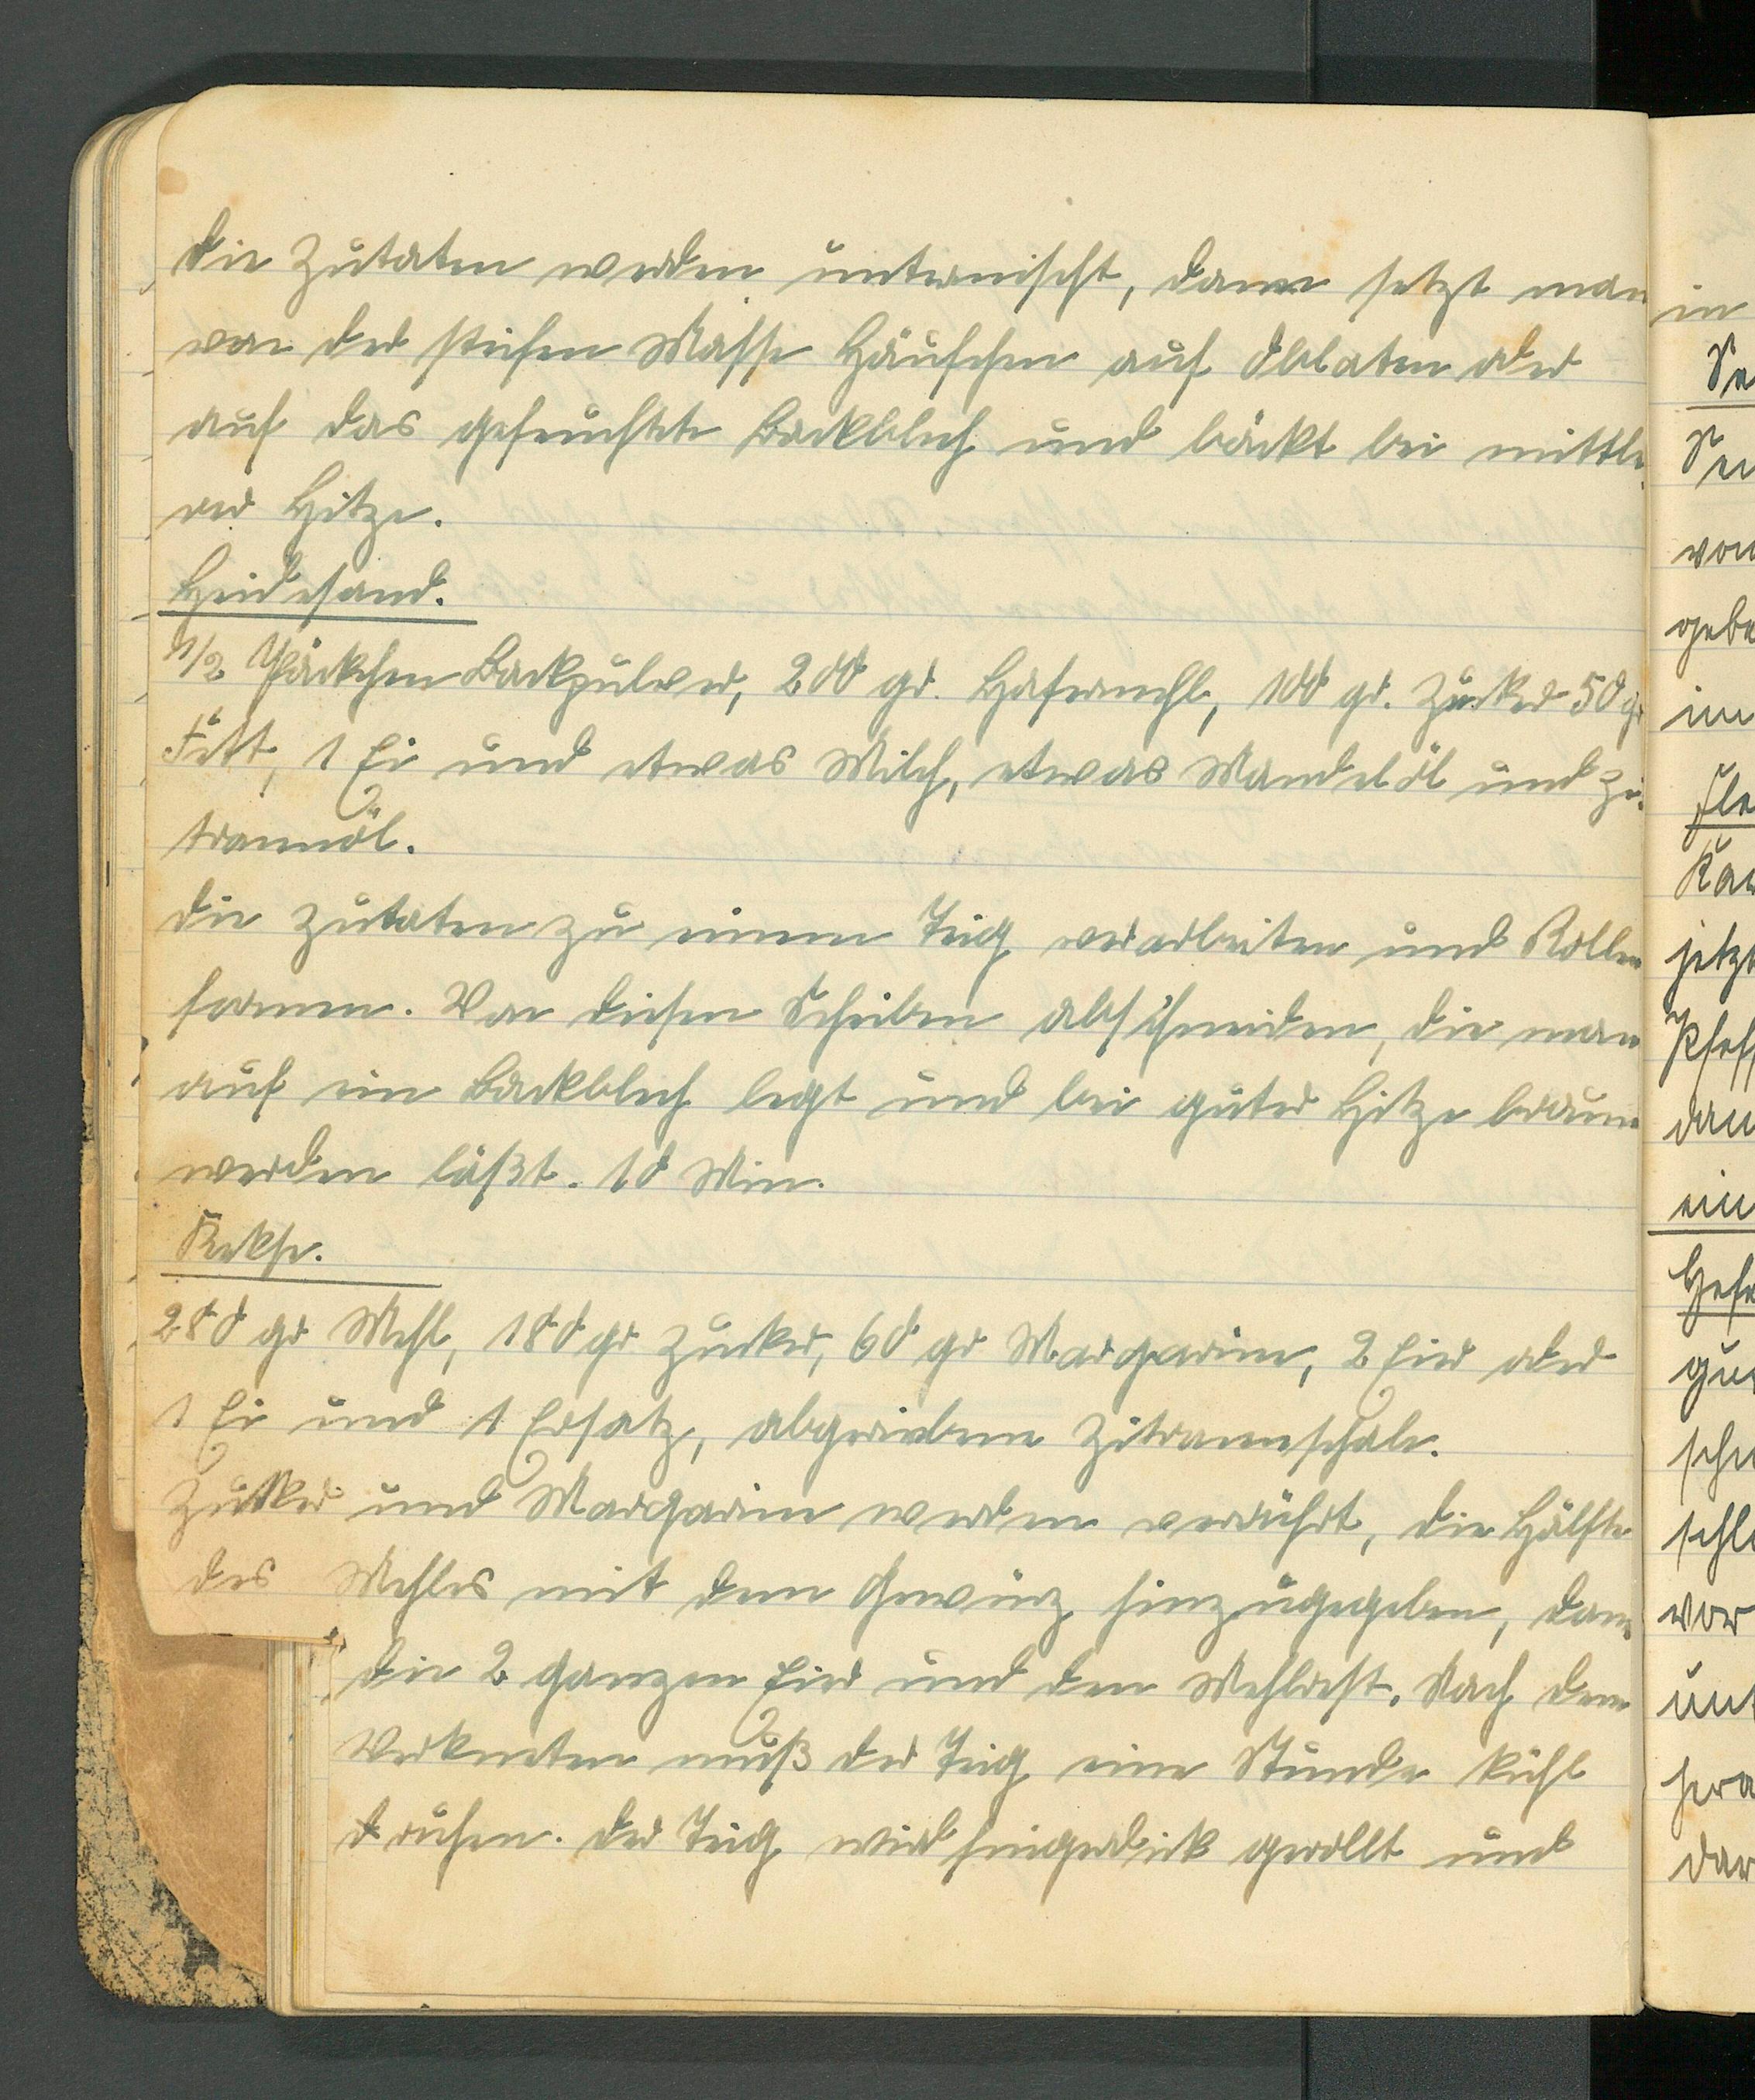 Die Zutaten werden untermischt, dann setzt man
von der steifen Masse Häufchen auf Oblaten oder
auf das gefeuchtete Backblech und bäckt bei mittle-
rer Hitze.
Heidesand.
1/2 Päckchen Backpulver, 200 gr. Hafermehl, 100 gr. Zucker 50 gr
Fett, 1 Ei und etwas Milch, etwas Mandelöl und Zi-
tronnöl.
Die Zutaten zu einem Teig verarbeiten und Rollen
formen. Von diesen Scheiben abschneiden, die man
auf ein Backblech legt und bei guter Hitze braun
werden läßt. 10 Min.
Kekse.
280 gr Mehl, 180 gr Zucker, 60 gr Margarine, 2 Eier oder
1 Ei und 1 Ersatz, abgeriebene Zitronenschale.
Zucker und Margarine werden verrührt, die Hälfte
des Mehles mit dem Gewürz hinzugegeben, dann
die 2 ganzen Eier und den Mehlrest. Nach dem
Verkneten muß der Teig eine Stunde kühl
ruhen. Der Teig wird fingerdick gerollt und
in
Se
Sen
von
gebe
im
Fle
Kar
jetzt
Pfeff
dan
ein
Hefe
gut
sch
schl
vor
unt
hera
dar